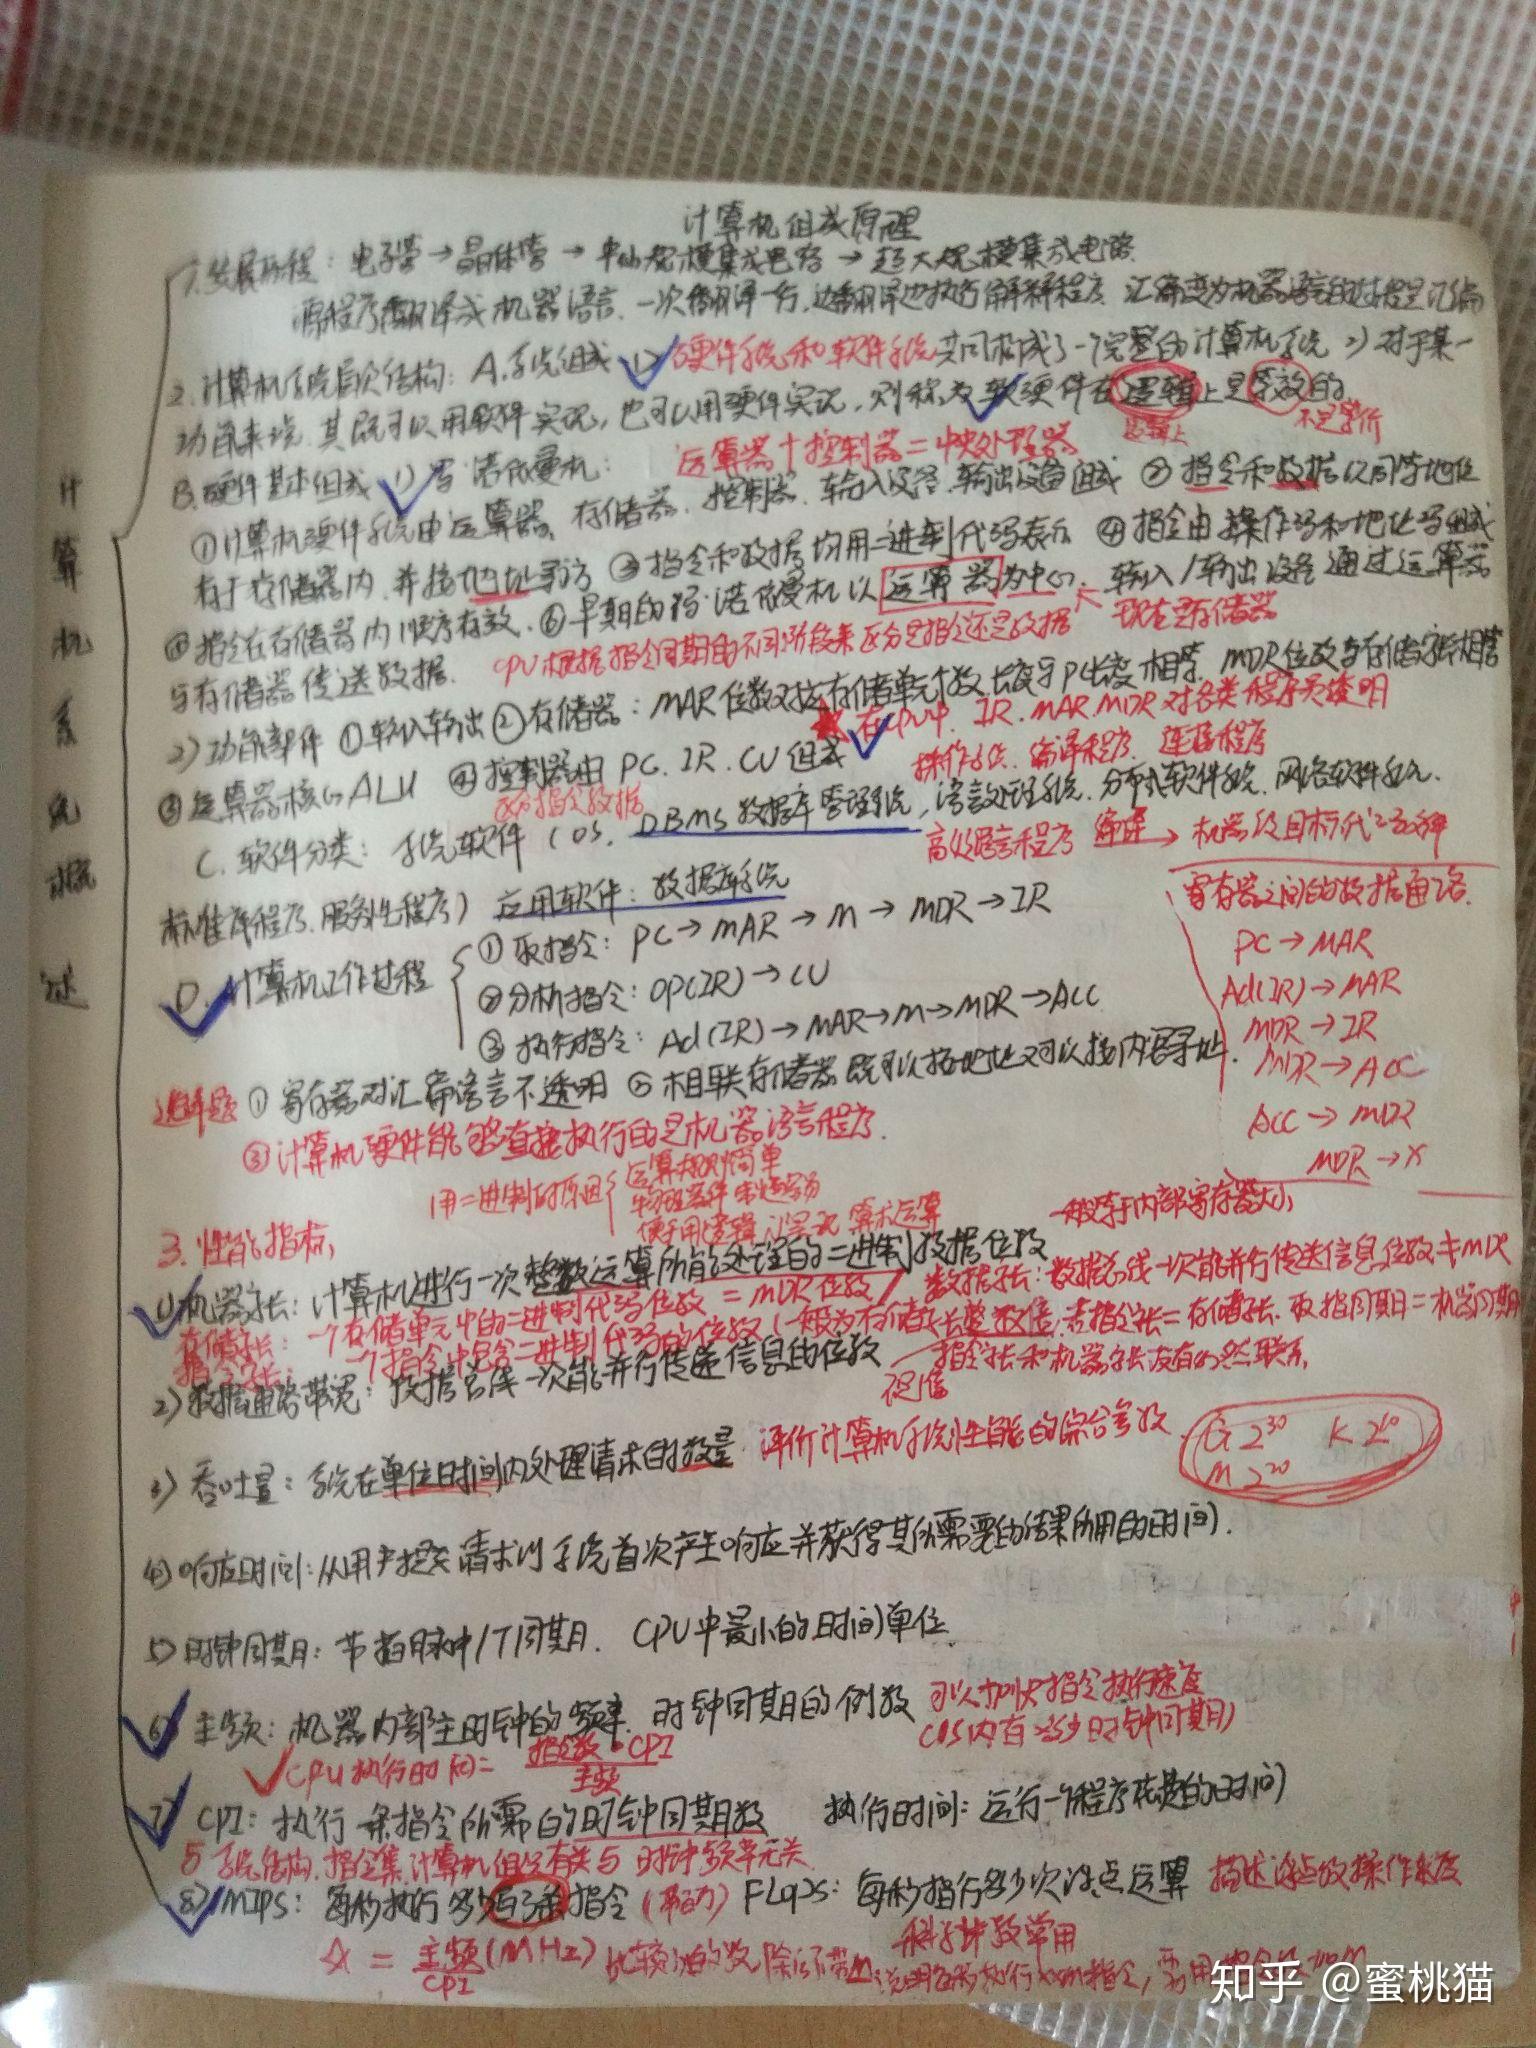 计算机组成原理
计算机系统概述
1.发展历程：电子管→晶体管→中小规模集成电路→超大规模集成电路
源程序翻译成机器语言.一次翻译一行,边翻译边执行解释程序.汇编变为机器语言的过程是汇编
2.计算机系统层次结构：A.系统组成 1)硬件系统和软件系统共同构成了一个完整的计算机系统 2)对于某一
功能来说,其既可以用软件实现,也可以用硬件实现,则称为软硬件在逻辑上是等效的
逻辑上 不是等价
运算器+控制器=中央处理器
B.硬件基本组成 1)冯·诺依曼机：
①计算机硬件系统由运算器、存储器、控制器、输入设备、输出设备组成 ②指令和数据以同等地位
存于存储器内,并按地址寻访 ③指令和数据均用二进制代码表示 ④指令由操作码和地址码组成
⑤指令在存储器内顺序存放.⑥早期的冯·诺依曼机以运算器为中心.输入/输出设备通过运算器
现在是存储器
与存储器传送数据. CPU根据指令周期的不同阶段来区分是指令还是数据
2)功能部件 ①输入输出 ②存储器：MAR位数对应存储单元个数,长度与PC长度相等.MDR位数与存储字长相等
在CPU中，IR.MAR.MDR对各类程序员透明
③运算器核心ALU ④控制器由PC.IR.CU组成
操作系统、编译程序、连接程序
区分指令数据
C.软件分类：系统软件(OS、DBMS数据库管理系统,语言处理系统.分布式软件系统.网络软件系统.
高级语言程序 编译→ 机器级目标代码文件
标准库程序.服务性程序) 应用软件：数据库系统
D.计算机工作过程
①取指令：PC→MAR→M→MDR→IR
②分析指令：OP(IR)→CU
③执行指令：Ad(IR)→MAR→M→MDR→ACC
寄存器之间的数据通路.
PC→MAR
Ad(IR)→MAR
MDR→IR
MDR→ACC
ACC→MDR
MDR→X
选择题 ①寄存器对汇编语言不透明 ②相联存储器既可以按地址又可以按内容寻址.
③计算机硬件能够直接执行的是机器语言程序.
用二进制的原因
运算规则简单
物理器件制造容易
便于用逻辑门实现算术运算
3.性能指标
一般等于内部寄存器大小
1)机器字长：计算机进行一次整数运算所能处理的二进制数据位数
数据字长：数据总线一次能并行传送信息位数≠MDR
存储字长：一个存储单元中的二进制代码位数=MDR位数
指令字长：一个指令中包含二进制代码的位数(一般为存储字长整数倍,若指令字长=存储字长.取指周期=机器周期
指令字长和机器字长没有必然联系.
2)数据通路带宽：数据总线一次能并行传送信息的位数
3)吞吐量：系统在单位时间内处理请求的数量 评价计算机系统性能的综合参数
G 2³⁰ K 2¹⁰
M 2²⁰
4)响应时间：从用户提交请求到系统首次产生响应并获得其所需要的结果所用的时间.
5)时钟周期：节拍脉冲/T周期. CPU中最小的时间单位
6)主频：机器内部主时钟的频率.时钟周期的倒数 可以加快指令执行速度
CPU执行时间=指令数·CPI/主频
7)CPI：执行一条指令所需的时钟周期数 执行时间：运行一个程序花费的时间
与系统结构.指令集.计算机组织有关与时钟频率无关
8)MIPS：每秒执行多少百万条指令 FLOPS：每秒执行多少次浮点运算 描述浮点数操作速度
科学计数常用
☆=主频(MHz)/CPI
知乎 @蜜桃猫